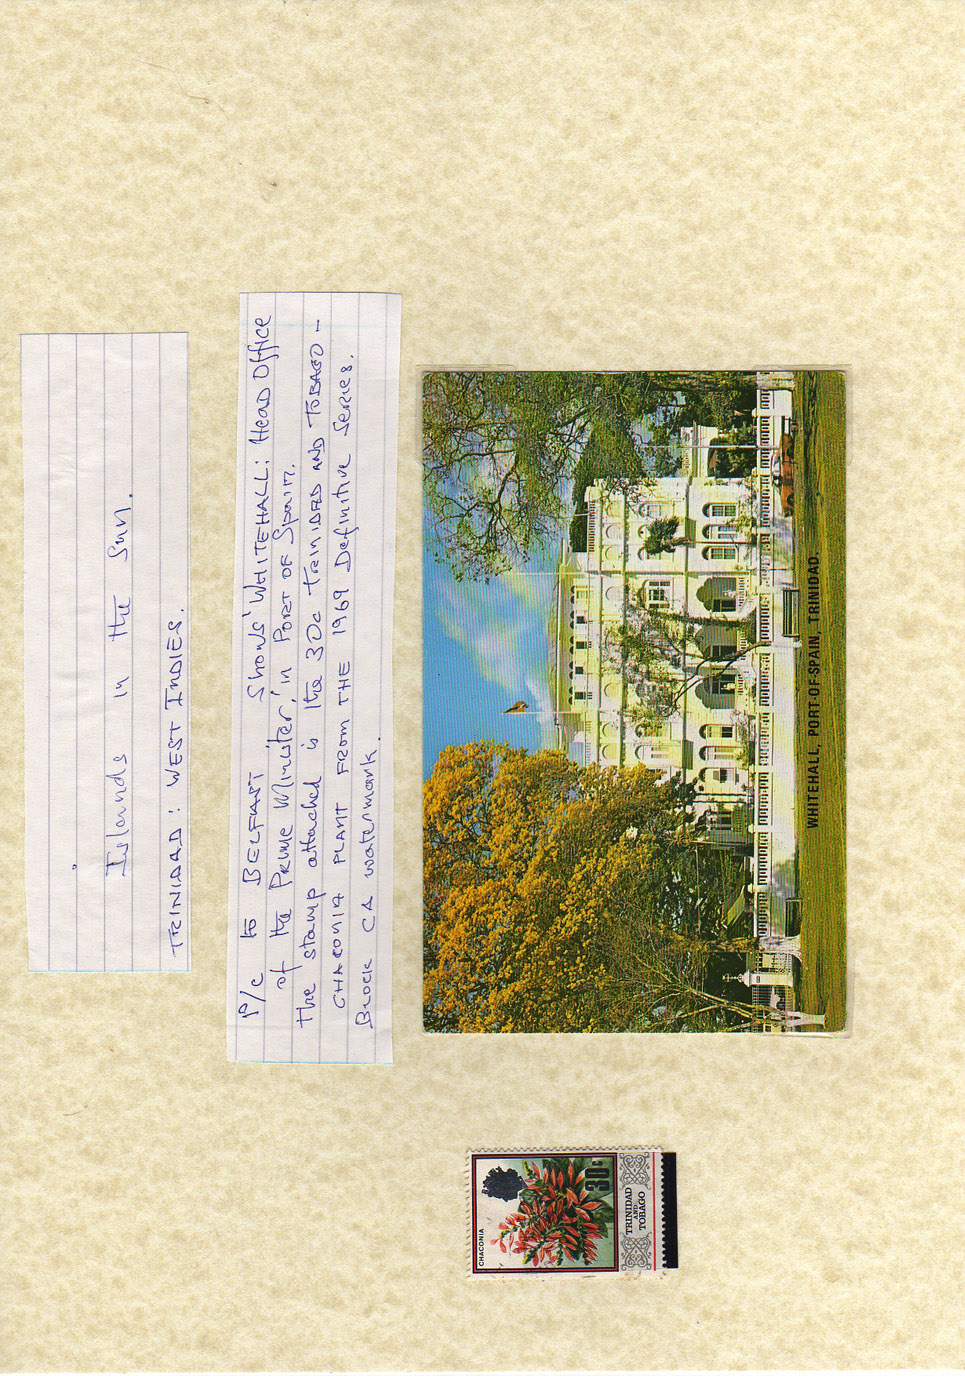 Islands in the Sun.
TRINIDAD: WEST INDIES.
P/C to BELFAST Shows 'WHITEHALL: HEAD Office
of the PRIME Minister,' in PORT OF Spain.
the stamp attached is the 30c TRINIDAD AND TOBAGO -
CHACONIA PLANT FROM THE 1969 Definitive Series.
Block CA watermark.
WHITEHALL, PORT-OF-SPAIN, TRINIDAD.
CHACONIA
30c
TRINIDAD
AND
TOBAGO